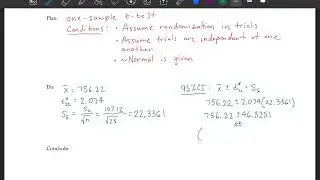 Plan: one-sample t-test
Conditions: • Assume randomization in trials
• Assume trials are independent of one another
• ~Normal is given
Do: x̄ = 756.22
t*₂₂ = 2.074
Sx̄ = Sx/√n = 107.12/√23 = 22.3361
95% CI: x̄ ± t*₂₂ · Sx̄
756.22 ± 2.074(22.3361)
756.22 ± 46.3251
or
(
Conclude